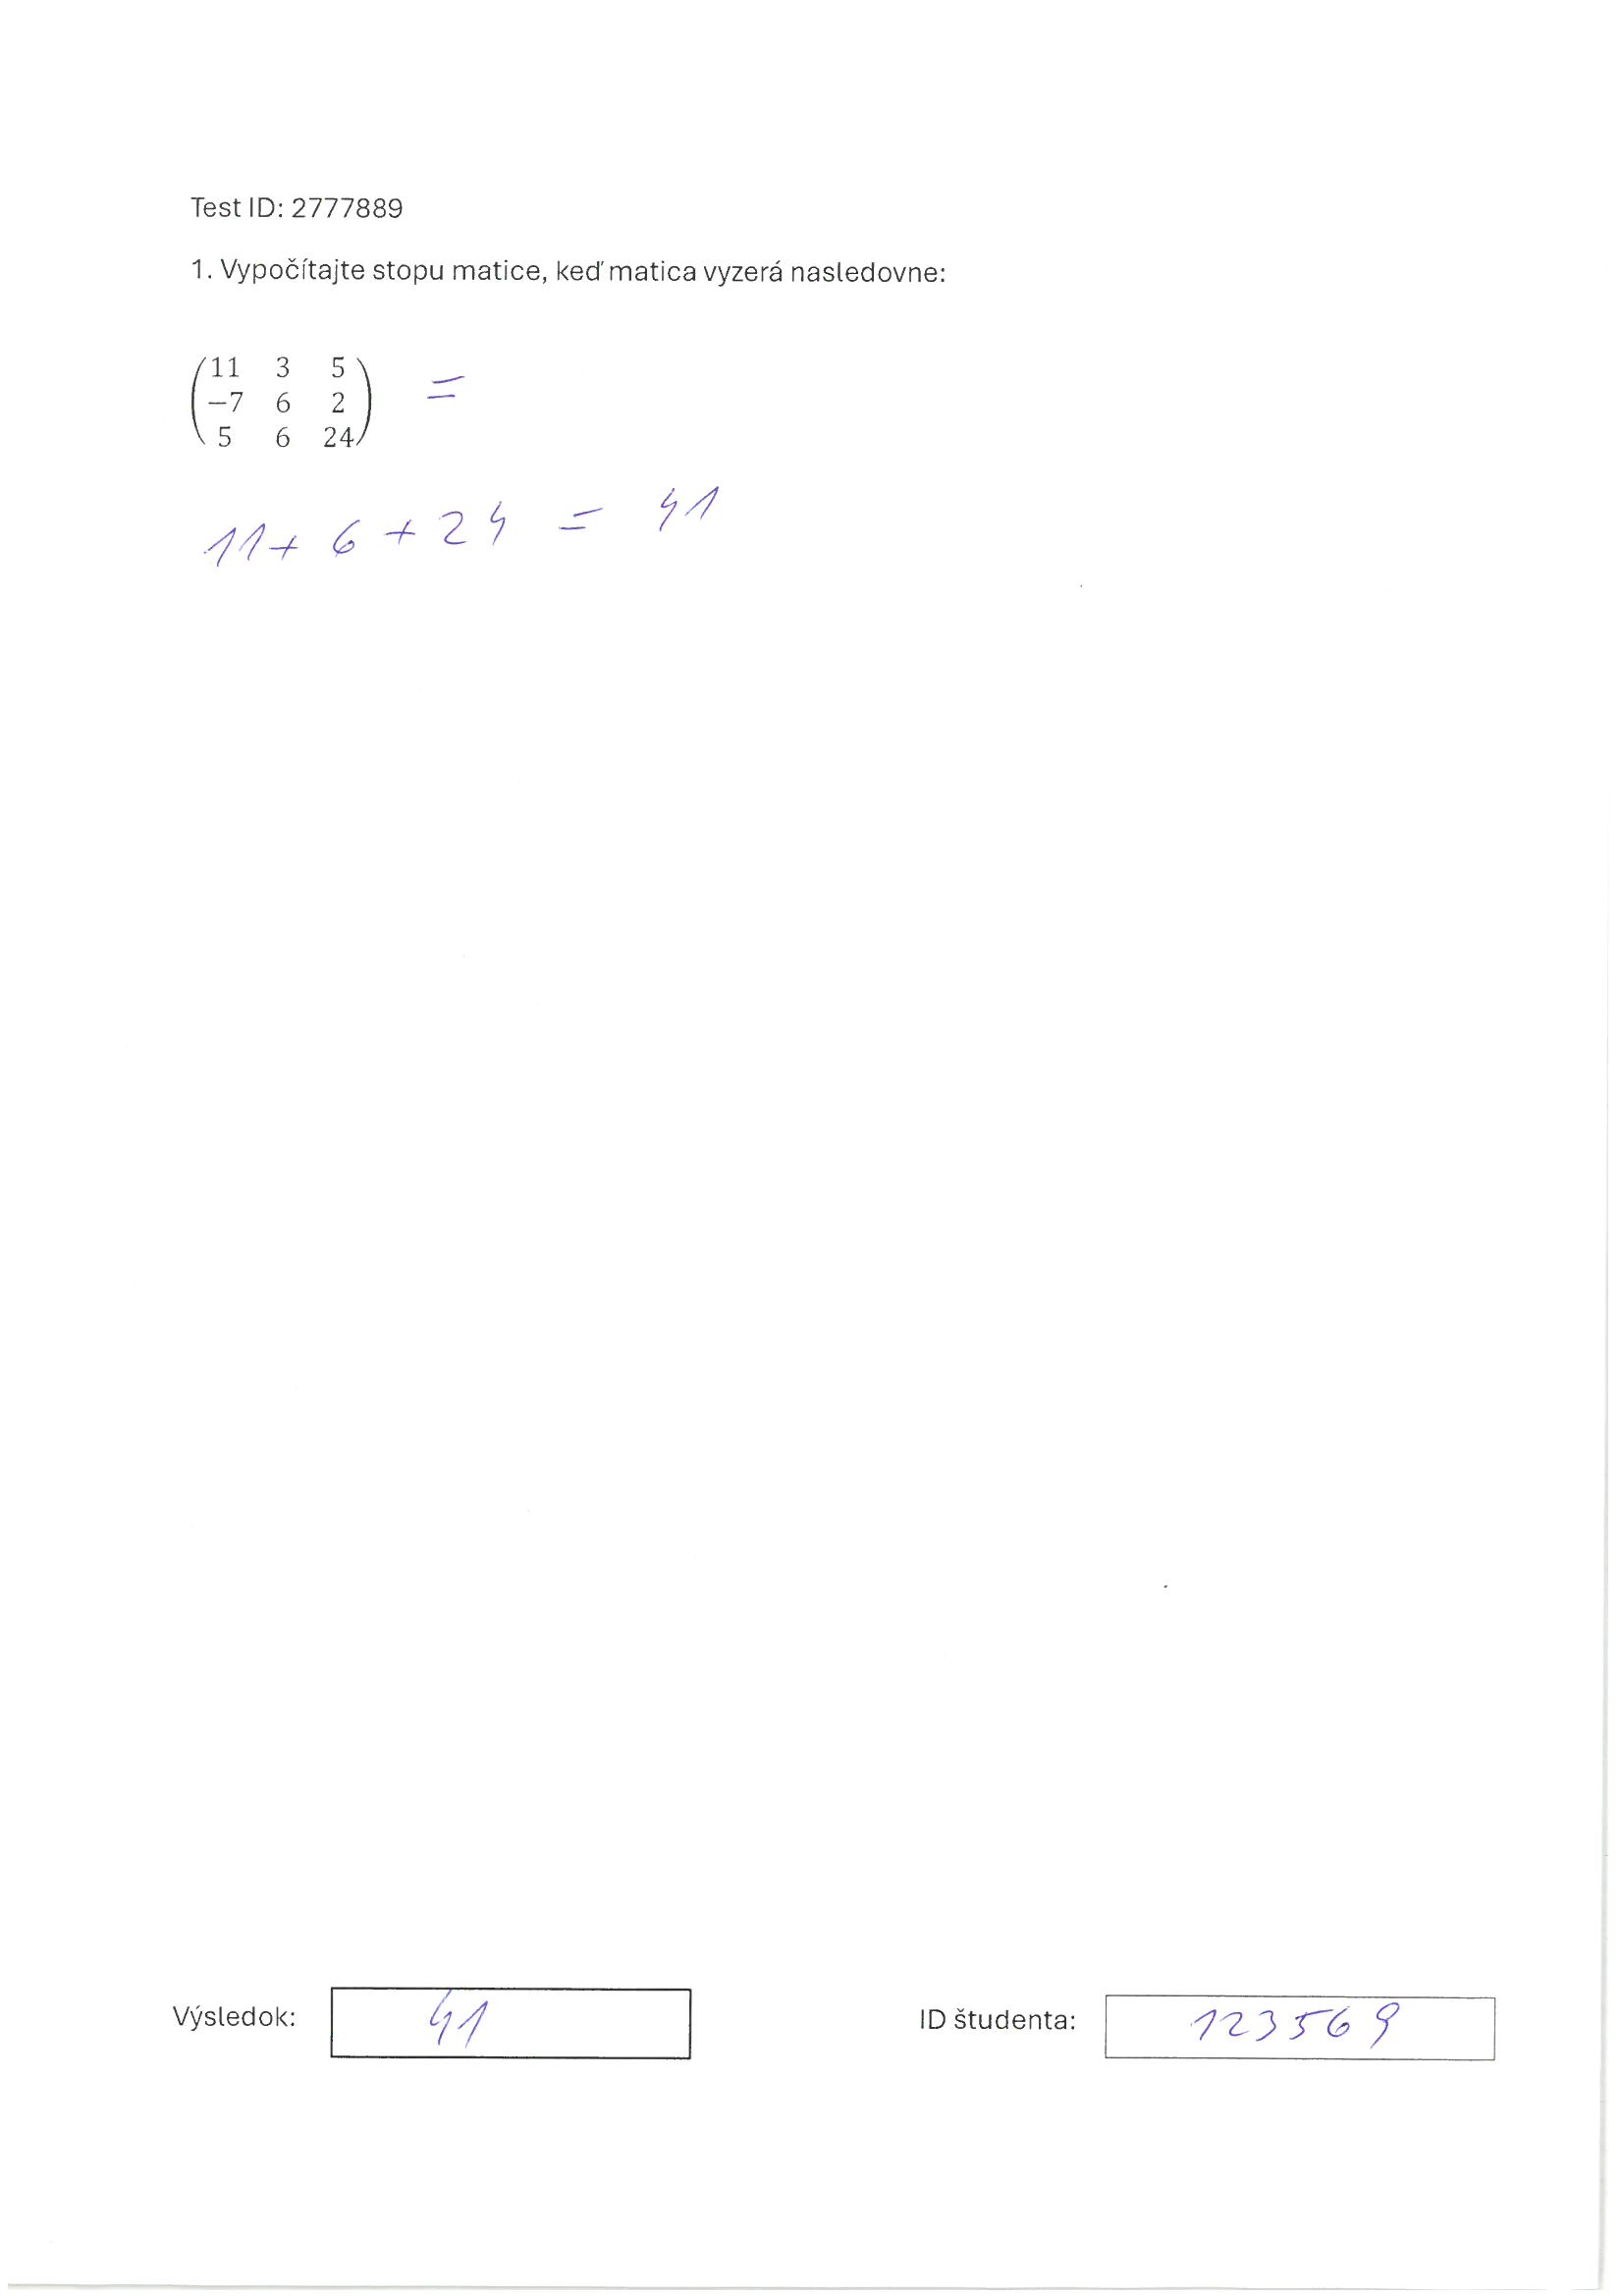 Test ID: 2777889
1. Vypočítajte stopu matice, keď matica vyzerá nasledovne:
11 3 5 =
−7 6 2
5 6 24
11 + 6 + 24 = 41
Výsledok: 41 ID študenta: 123569